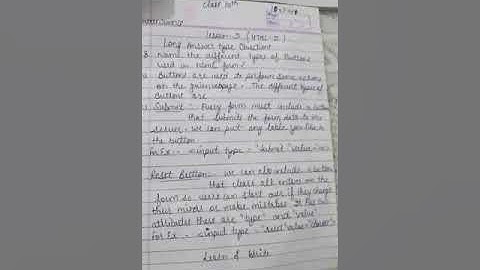 class 10th
Lesson-5 (HTML-2)
Long Answer type Questions
Name the different types of Buttons
used in html form?
Buttons are used to perform some actions
on the given webpage. The different types of
Buttons are
Submit :- Every form must include a button
that submits the form data to the
server. we can put any lable you like to
the button
for Ex :- <input type = "submit" value =
Reset Button :- we can also include a button
that clears all entries on the
form so users can start over if they change
their minds or make mistakes. It has
attributes these are "type" and "value"
for Ex :- <input type = "reset" value=
Learn & Write